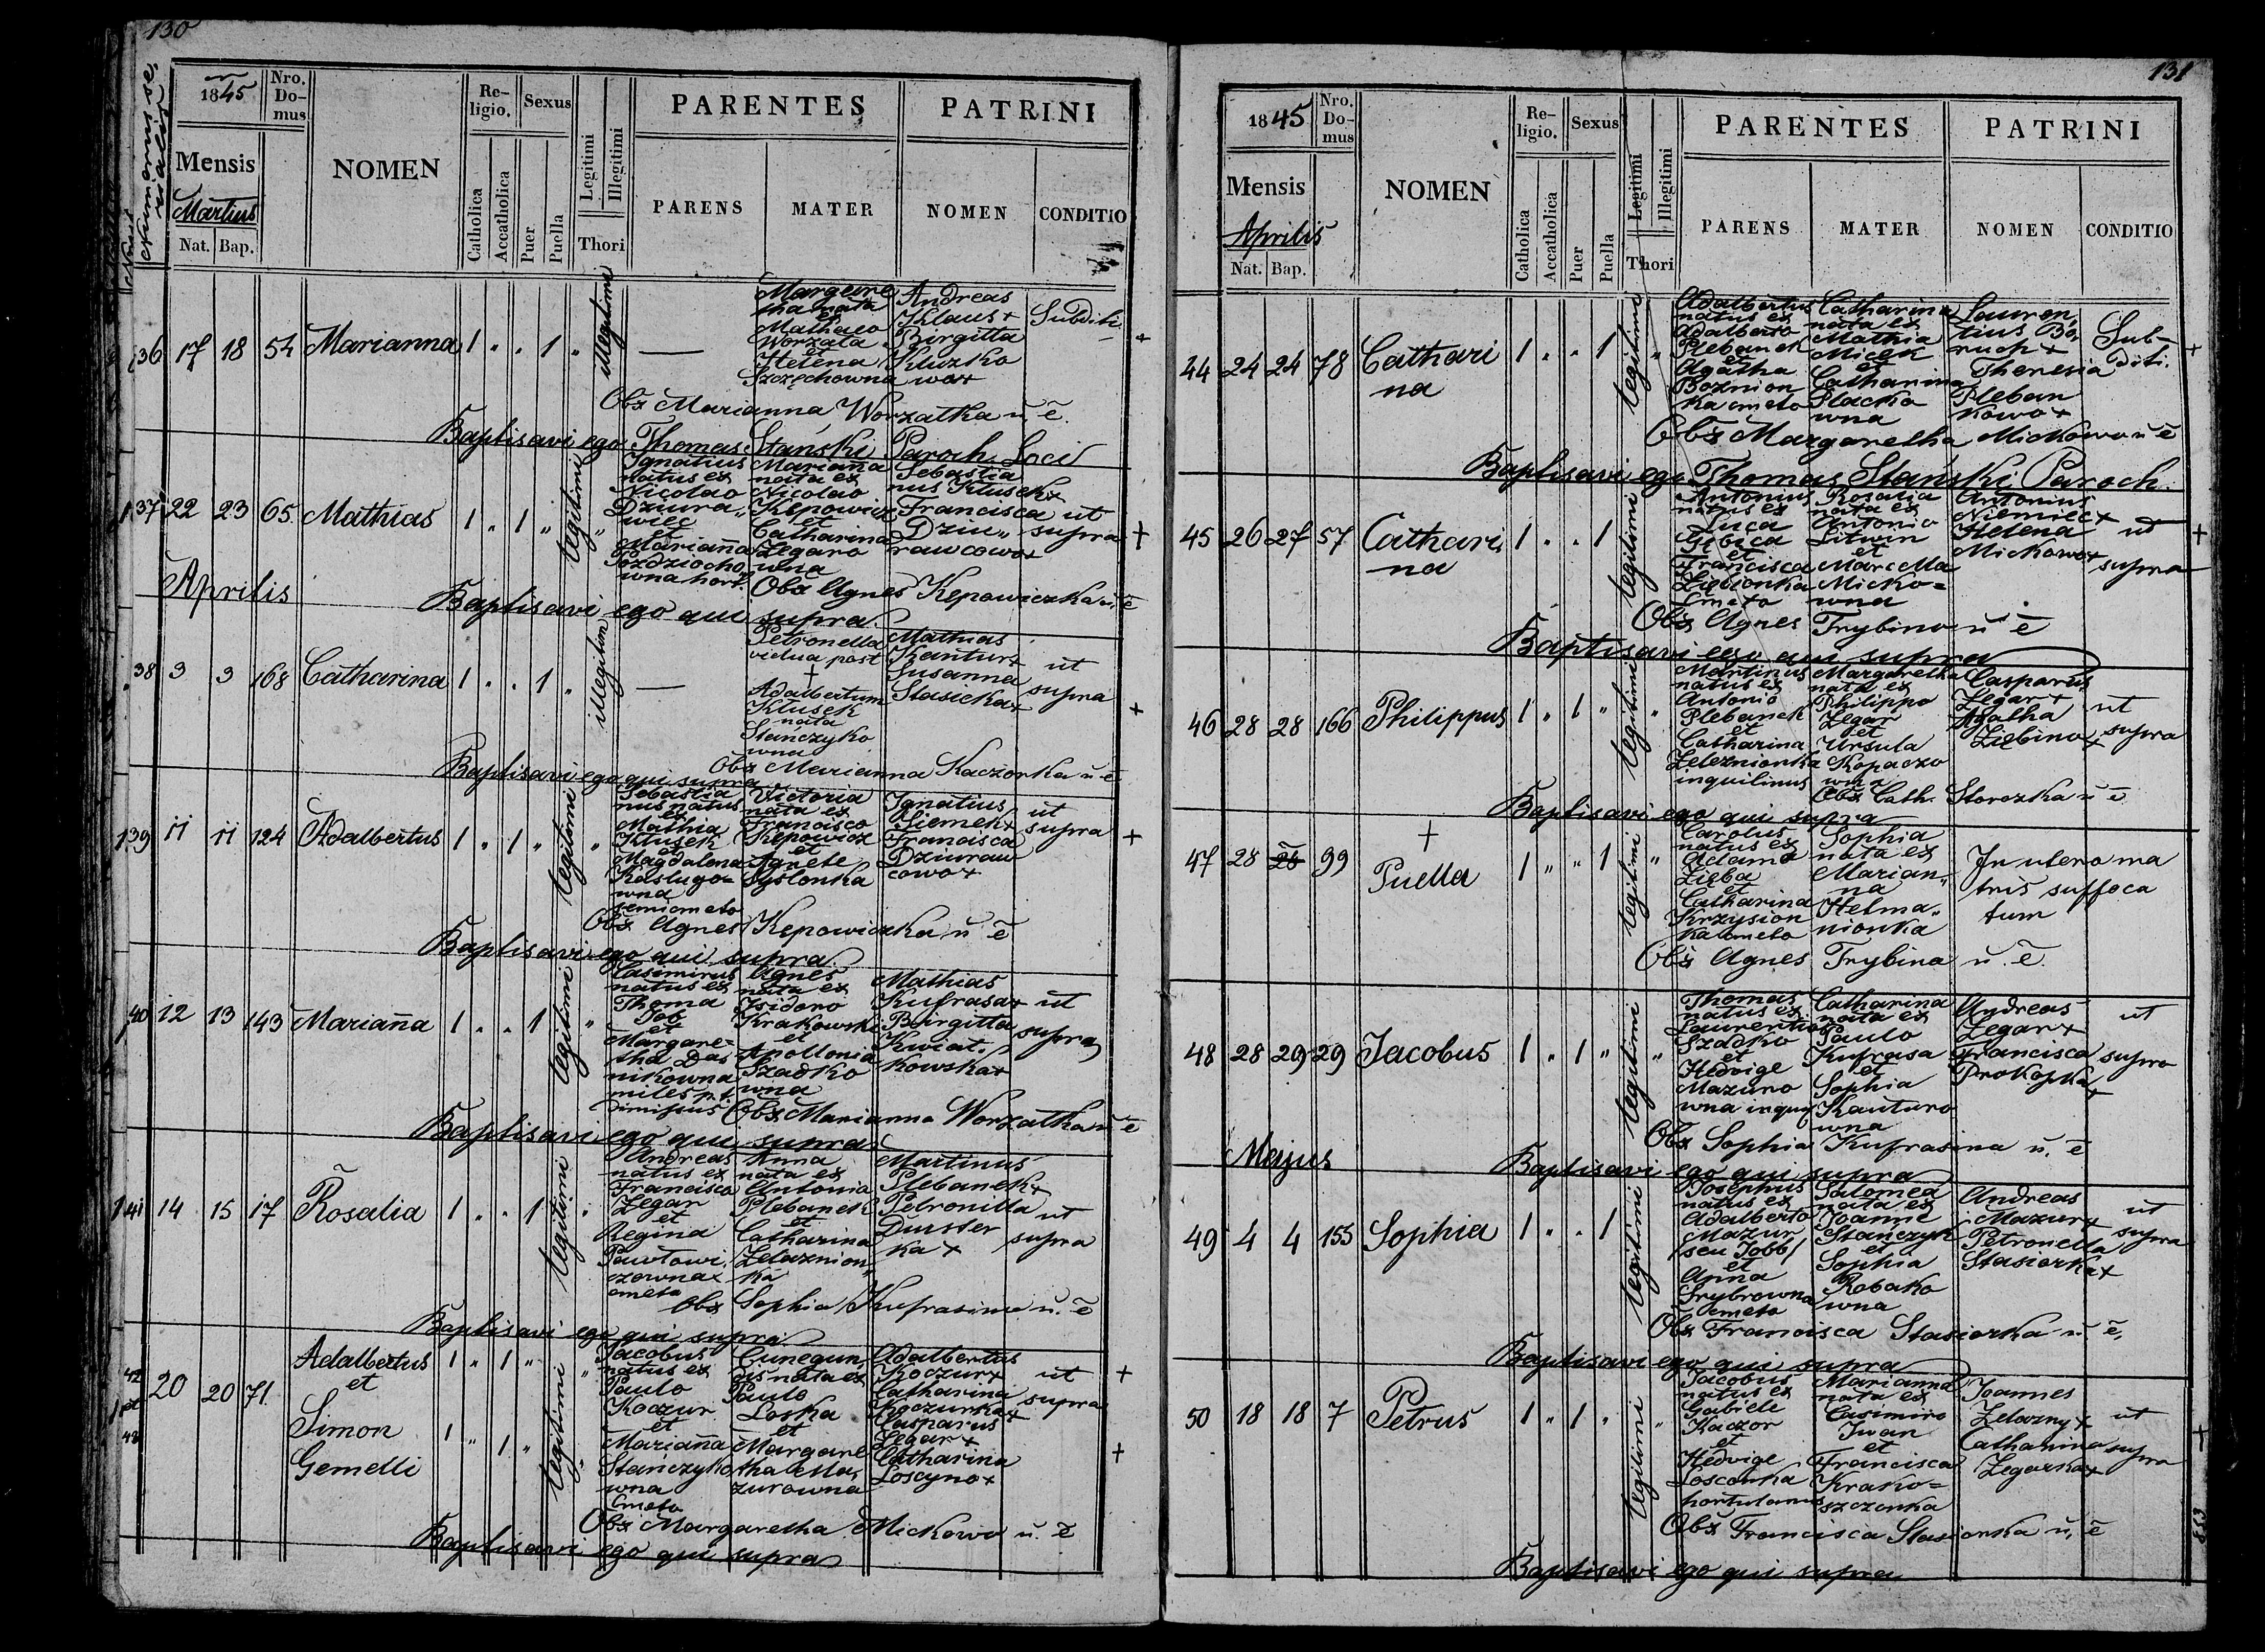 130
Numerus se
rialis
1845
Nro.
Do-
mus
NOMEN
Re-
ligio.
Sexus
PARENTES
PATRINI
Mensis
Martius
Nat. Bap.
Catholica
Accatholica
Puer
Puella
Legitimi
Illegitimi
Thori
PARENS
MATER
NOMEN
CONDITIO
36 17 18 54 Marianna 1 " " 1 " illegitimi —
Margare
tha nata
et
Mathaeo
Worzała
et
Helena
Szczęchowna
Andreas
Klaus +
Birgitta
Kluzko
wa +
Subditi
+
Obs Marianna Worzałka u. e.
Baptisavi ego Thomas Stański Paroch. Loci
137 22 23 65 Mathias 1 " 1 " legitimi "
Ignatius
natus ex
Nicolao
Dziura
wiec
et
Mariańa
Pozdziocho
wna hort.
Mariana
nata ex
Nicolao
Kępowicz
et
Catharina
Zegaro
wna
Sebastia
nus Kłusek +
Francisca
Dziu
rawcowa +
ut
supra
+
Aprilis
Obs Agnes Kępowiczka u. e
Baptisavi ego qui supra
38 3 3 168 Catharina 1 " " 1 " illegitim —
Petronella
vidua post
+
Adalbertum
Kłusek
nata
Stańczyko
wna
Mathias
Kantur +
Susanna
Stasicka +
ut
supra
+
Obs Marianna Kaczorka u e
Baptisavi ego qui supra
139 11 11 124 Adalbertus 1 " 1 " legitimi "
Sebastia
nus natus
ex
Mathia
Kłusek
et
Magdalena
Kasługo-
wna
semicmeto
Victoria
nata ex
Francisco
Kępowicz
et
Agnete
Sysłonka
Ignatius
Ziemek +
Francisca
Dziuraw
cowa +
ut
supra
+
Obs Agnes Kępowiczka u e
Baptisavi ego qui supra
40 12 13 143 Mariańa 1 " " 1 legitimi "
Casimirus
natus ex
Thoma
Job
et
Margare-
tha Das
nikowna
miles p.t.
dimissus
Agnes
nata ex
Isidoro
Krakowski
et
Apollonia
Szadko
wna
Mathias
Kufrasa +
Birgitta
Kwiat
kowska +
ut
supra
Obs Marianna Worzałka u e
Baptisavi ego qui supra
141 14 15 17 Rosalia 1 " " 1 legitimi "
Andreas
natus ex
Francisco
Zegar
et
Regina
Pawłowi
czowna
cmeto
Anna
nata ex
Antonio
Plebanek
et
Catharina
Zelaznion
ka
Martinus
Plebanek +
Petronilla
Durster
ka +
ut
supra
Obs Sophia Kufrasina u. e
Baptisavi ego qui supra
42
et
43
20 20 71
Adalbertus 1 " 1 "
et
Simon 1 " 1 "
Gemelli
legitimi
Jacobus
natus ex
Paulo
Koczur
et
Mariańa
Stańczyko
wna
Cmeto
Cunegun
dis nata ex
Paulo
Loska
et
Margare
tha Ma
zurowna
Adalbertus
Koczur +
Catharina
Koczurka +
Casparus
Zegar +
Catharina
Loscyna +
ut
supra
+
+
Obs Margaretha Mickowa u. e
Baptisavi ego qui supra
131
1845
Nro.
Do-
mus
NOMEN
Re-
ligio.
Sexus
PARENTES
PATRINI
Mensis
Aprilis
Nat. Bap.
Catholica
Accatholica
Puer
Puella
Legitimi
Illegitimi
Thori
PARENS
MATER
NOMEN
CONDITIO
44 24 24 78 Cathari
na
1 " " 1 legitimi "
Adalbertus
natus ex
Adalberto
Plebanek
et
Agatha
Boznion
ka cmeto
Catharina
nata ex
Mathia
Micek
et
Catharina
Placko
wna
Lauren
tius Bo
ruch +
Theresia
Pleban
kowa +
Sub-
diti.
+
Obs Margaretha Mickowa u e
Baptisavi ego Thomas Stański Paroch.
45 26 27 57 Cathari
na
1 " " 1 legitimi
Antonius
natus ex
Luca
Gębica
et
Francisca
Ziębionka
Cmeto
Rosalia
nata ex
Antonio
Litwin
et
Marcella
Micko-
wna
Antonius
Niemiec +
Helena
Mickowa +
ut
supra
+
Obs Agnes Trybina u e
Baptisavi ego qui supra
46 28 28 166 Philippus 1 " 1 " legitimi "
Martinus
natus ex
Antonio
Plebanek
et
Catharina
Zelaznionka
inquilinus
Margaretha
nata ex
Philippo
Zegar
et
Ursula
Kopaczo
wna
Casparus
Zegar +
Agatha
Ziębina +
ut
supra
Obs Cath. Storozka u e
Baptisavi ego qui supra
47 28 28 99
+
Puella
1 " " 1 legitimi "
Carolus
natus ex
Adamo
Zięba
et
Catharina
Krzysion
ka cmeto
Sophia
nata ex
Marian
na
Helma
nionka
In utero ma
tris suffoca
tum
Obs Agnes Trybina u. e.
48 28 29 29 Jacobus 1 " 1 " legitimi "
Thomas
natus ex
Laurentio
Szadko
et
Hedvige
Mazuro
wna inquil
Catharina
nata ex
Paulo
Kufrasa
et
Sophia
Kanturo
wna
Andreas
Zegar +
Francisca
Prokopka +
ut
supra
Obs Sophia Kufrasina u. e
Majus
Baptisavi ego qui supra
49 4 4 155 Sophia 1 " " 1 legitimi
Josephus
natus ex
Adalberto
Mazur
/seu Jobb/
et
Anna
Trybrowna
cmeto
Salomea
nata ex
Joanne
Stańczyk
et
Sophia
Robako
wna
Andreas
Mazur +
Petronella
Stasiorka +
ut
supra
Obs Francisca Stasiorka u e,
Baptisavi ego qui supra
50 18 18 7 Petrus 1 " 1 " legitimi "
Jacobus
natus ex
Gabiele
Kaczor
et
Hedvige
Losconka
hortulanus
Marianna
nata ex
Casimiro
Iwan
et
Francisca
Krako-
szczonka
Joannes
Zelazny +
Catharina
Zegarka +
ut
supra
+
Obs Francisca Stasiorka u, e
Baptisavi ego qui supra